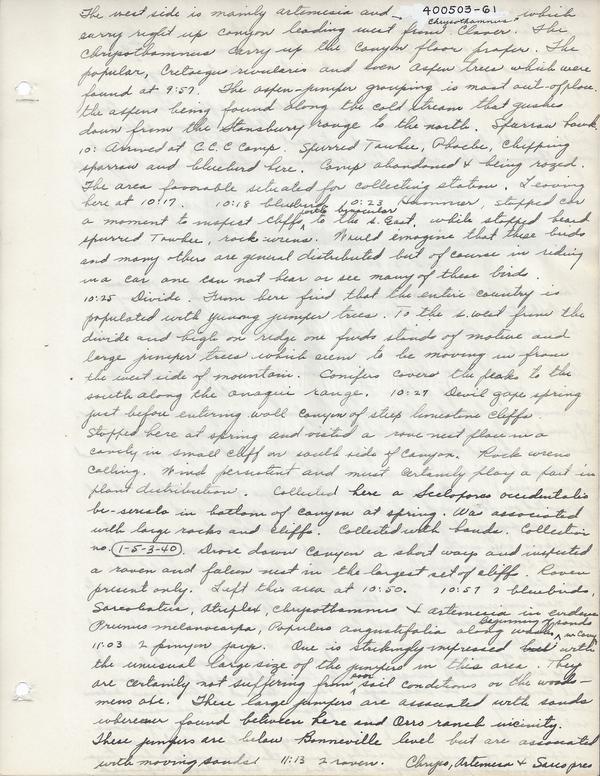 400503-61
The west side is mainly artemesia and Chrysothamnus which
carry right up canyon leading west from Clover. The
Chrysothamnus carry up the canyon floor proper. The
popular, Cretaegu rivularis and even aspen trees which were
found at 9:57. The aspen-juniper grouping is most out-of-place.
the aspens being found along the cold stream that gushes
down from the Stansbury range to the north. Sparrow hawk.
10: Arrived at C.C.C Camp. Spurred Towhee, Phoebe, Chipping
sparrow and bluebird here. Camp abandoned & being razed.
The area favorable situated for collecting station. Leaving
here at 10:17. 10:18 bluebird, 10:23 Hammer, stopped car
a moment to inspect cliffs with binocular to the s. East, while stopped heard
spurred Towhee, rock-wrens. Would emagine that these birds
and many others are general distributed but of course in riding
in a car one can not hear or see many of these birds.
10:25 Divide. From here find that the entire country is
populated with yunong juniper trees. To the s.west from the
divide and high on ridge one finds stands of mature and
large juniper trees which siem to be moving in from
the west side of mountain. Conifers covers the peaks to the
south along the onaqui range. 10:27 Devil gape spring
just before entering wall canyon of steep limestone cliffs.
Stopped here at spring and visited a nest place in a
cavity in small cliff on south side of canyon. Rock wrens
calling. Wind persistent and must certainly play a part in
plant distribution. Collected here a Sceloporus occidentalis
bi-seriata in bottom of canyon at spring. Was associated
with large rocks and cliffs. Collected with hands. Collection
no. 1-5-3-40. Drove down canyon a short ways and inspected
a raven and falcon nest in the largest set of cliffs. Raven
present only. Left this area at 10:50. 10:57 2 bluebirds,
Sarcobatus, Atriplex, Chrysothamnus & artemesia in evidence
Prunus melanocarpa, Populus angustifolia along Beginning of sands
11:03 2 pinyon jays. One is strikingly impressed with
the unusual large size of the junipers in this area. They
are certainly not suffering from poor soil conditions or the woods-
mens axe. These large junipers are associated with sands
wherever found between here and Orrs ranch vicinity.
These junipers are below Bonneville level but are associated
with moving sands! 11:13 2 raven. Chryso, Artemesia & Sarco pres